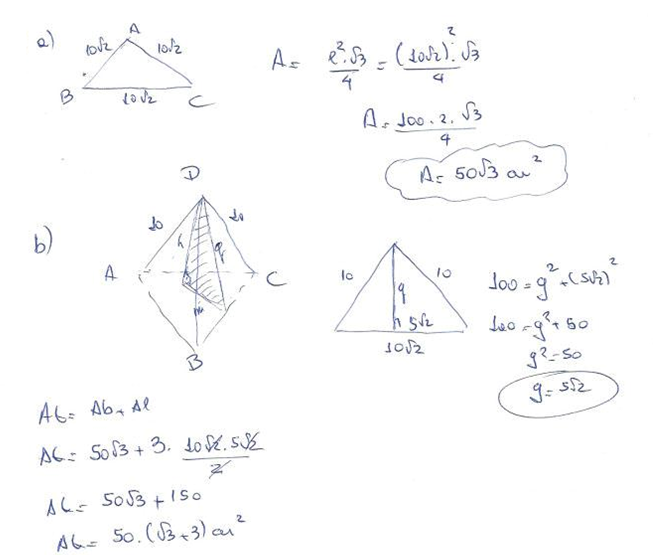 a)
A
10√2 10√2
B 10√2 C
A = ℓ²·√3/4 = (10√2)²·√3/4
A = 100·2·√3/4
A = 50√3 cm²
b)
D
10 10
h g
A C
m
B
10 10
g
5√2
10√2
100 = g² + (5√2)²
100 = g² + 50
g² = 50
g = 5√2
At = Ab + Al
At = 50√3 + 3· 10√2·5√2/2
At = 50√3 + 150
At = 50·(√3+3) cm²